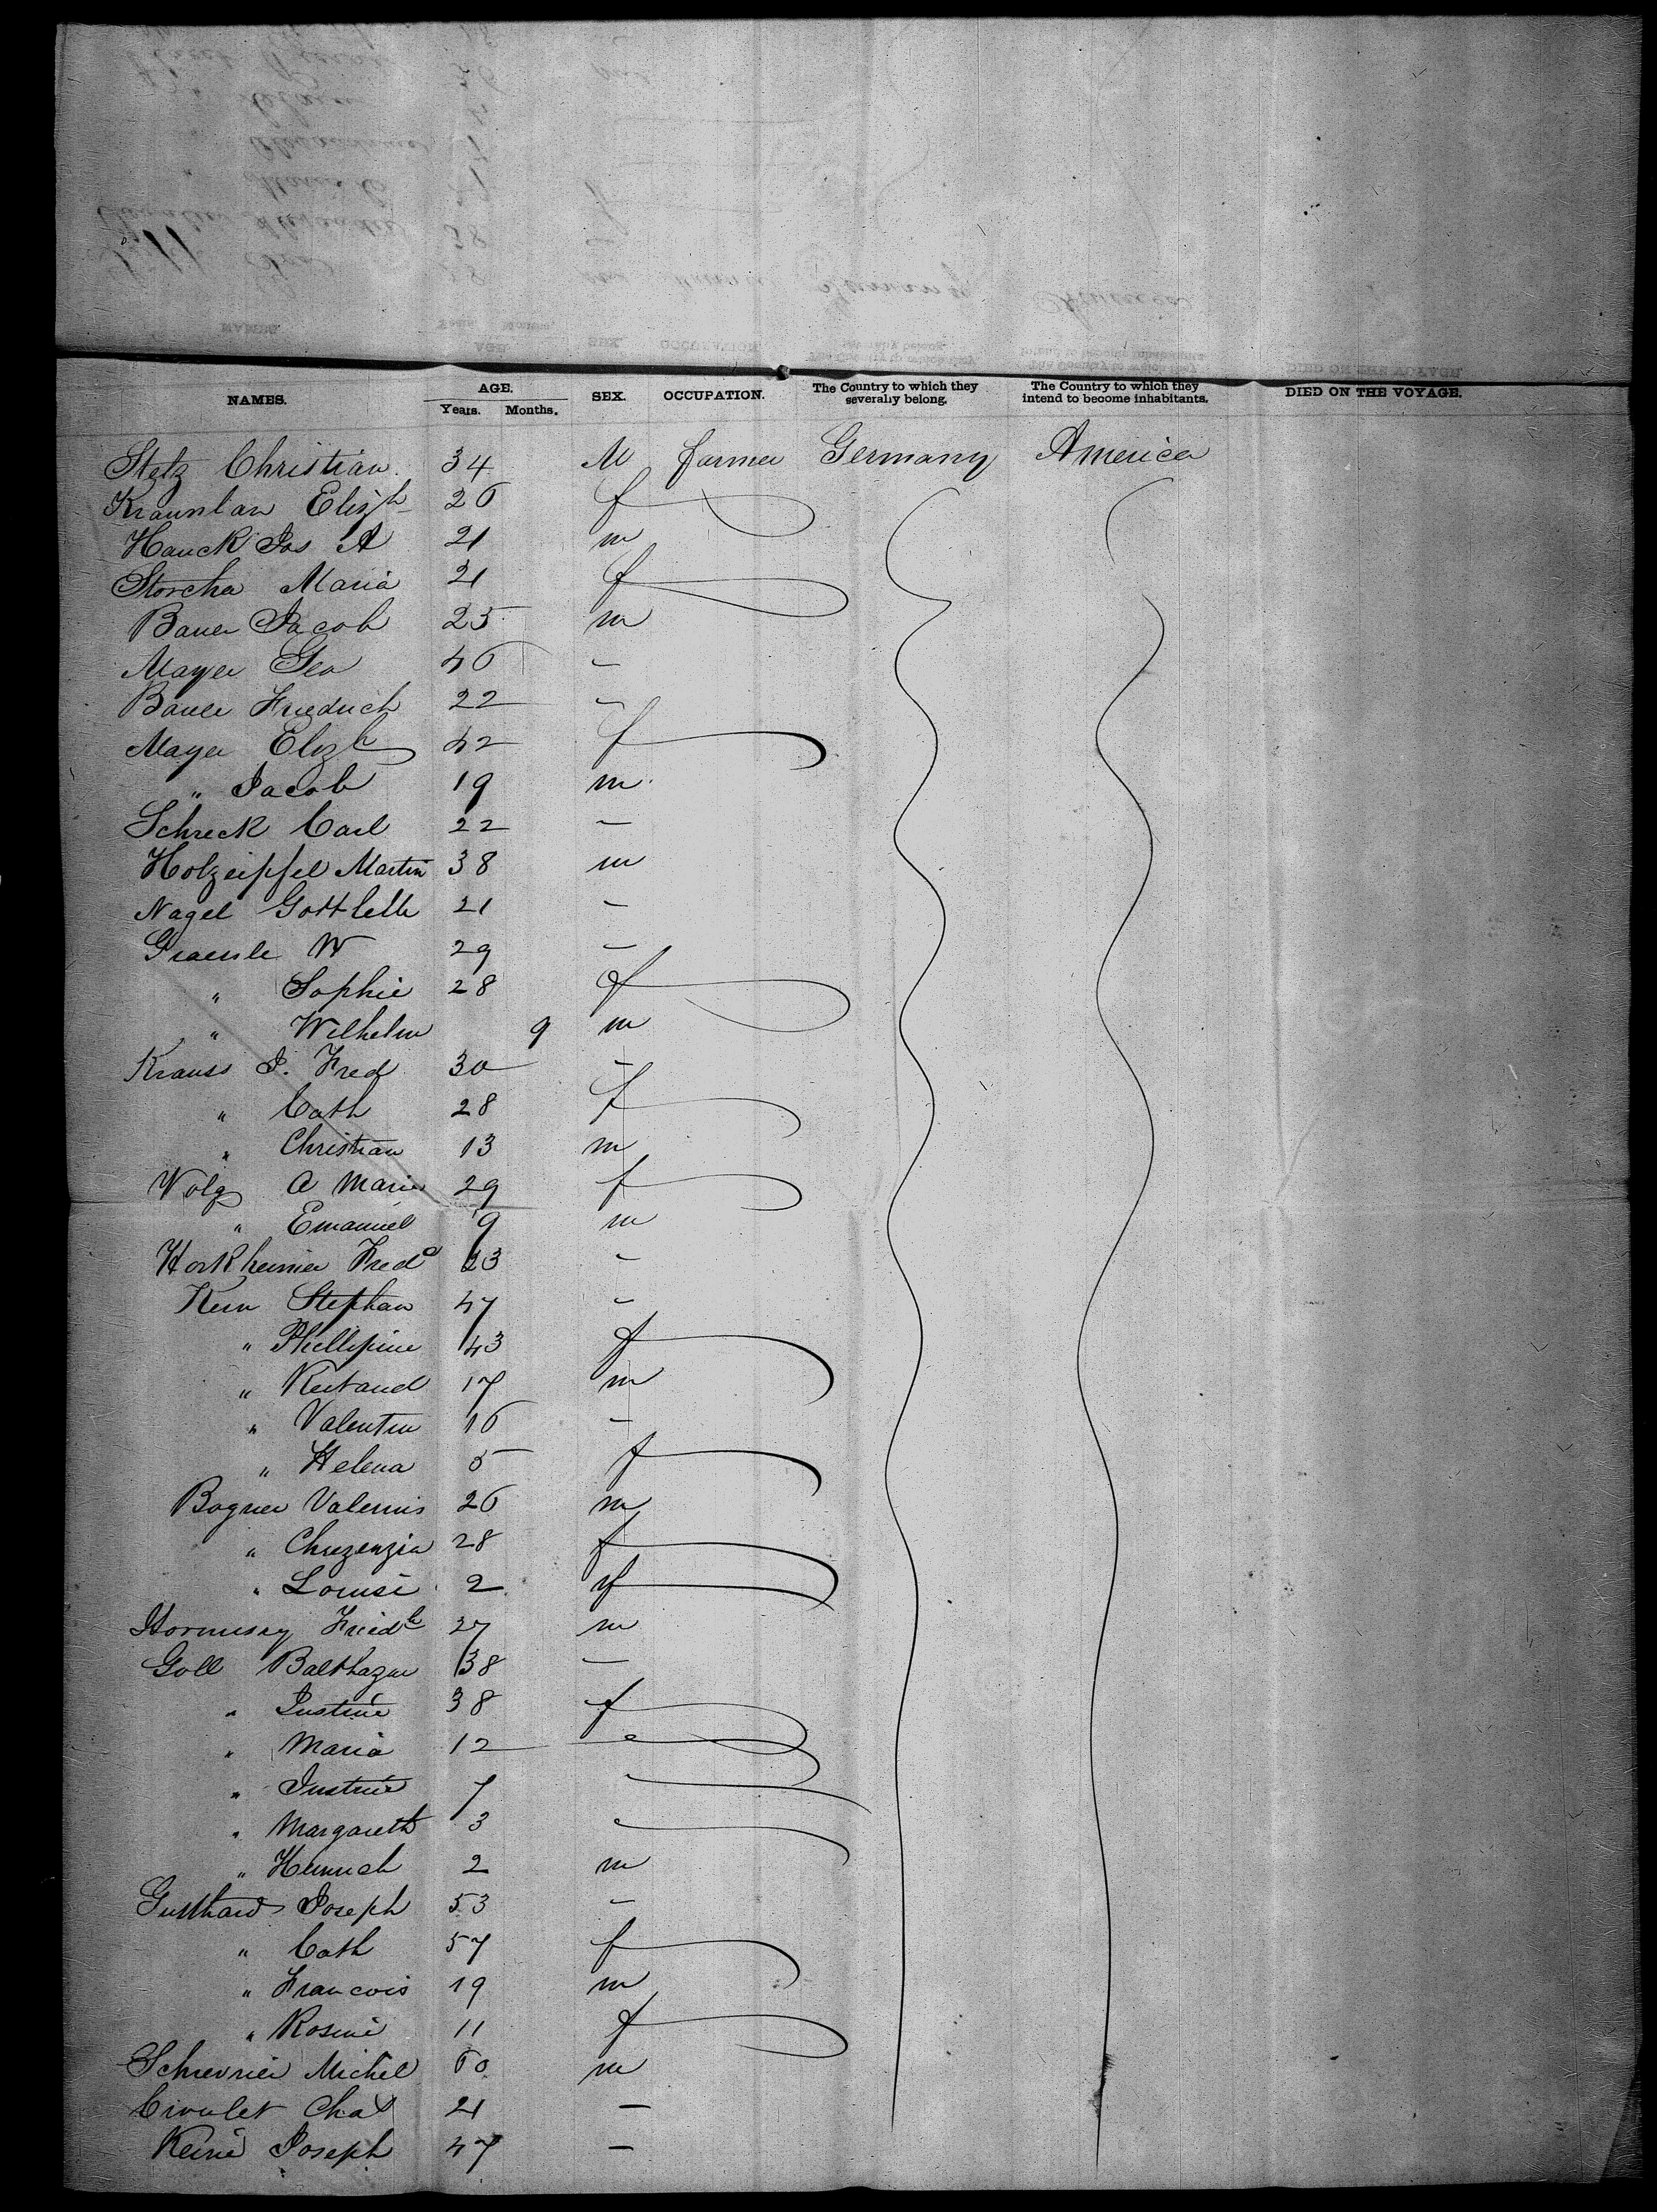 NAMES. AGE. SEX. OCCUPATION. The Country to which they severally belong. The Country to which they intend to become inhabitants. DIED ON THE VOYAGE.
Years. Months.
Stetz Christian 34 M farmer Germany America
Kraunlan Elizh 26 f
Hauck Jos A 21 m
Storcha Maria 21 f
Bauer Jacob 25 m
Mayer Geo 46 -
Bauer Friedrich 22 -
Mayer Elizh 42 f
" Jacob 19 m
Schreck Carl 22 -
Holzeipfel Martin 38 m
Nagel Gottlelb 21 -
Graessle W 29 -
" Sophie 28 f
" Wilhelm 9 m
Krauss J. Fred 30 -
" Cath 28 f
" Christian 13 m
Volz A Marie 29 f
" Emanuel 9 m
Horkheimer Fredc 23 -
Kern Stephan 47 -
" Phillipine 43 f
" 17 m
" Valentin 16 -
" Helena 5 f
Bogner Valerius 26 m
" Chrezenzia 28 f
" Louise 2 f
Friedh 27 m
Goll Balthazar 38 -
" Justine 38 f
" Maria 12
" Justine 7
" Margareth 3
" Heinrich 2 m
Gutthard Joseph 53 -
" Cath 57 f
" Francois 19 m
" Rosine 11 f
Michel 60 m
Civulet Chas 21 -
Keiné Joseph 47 -